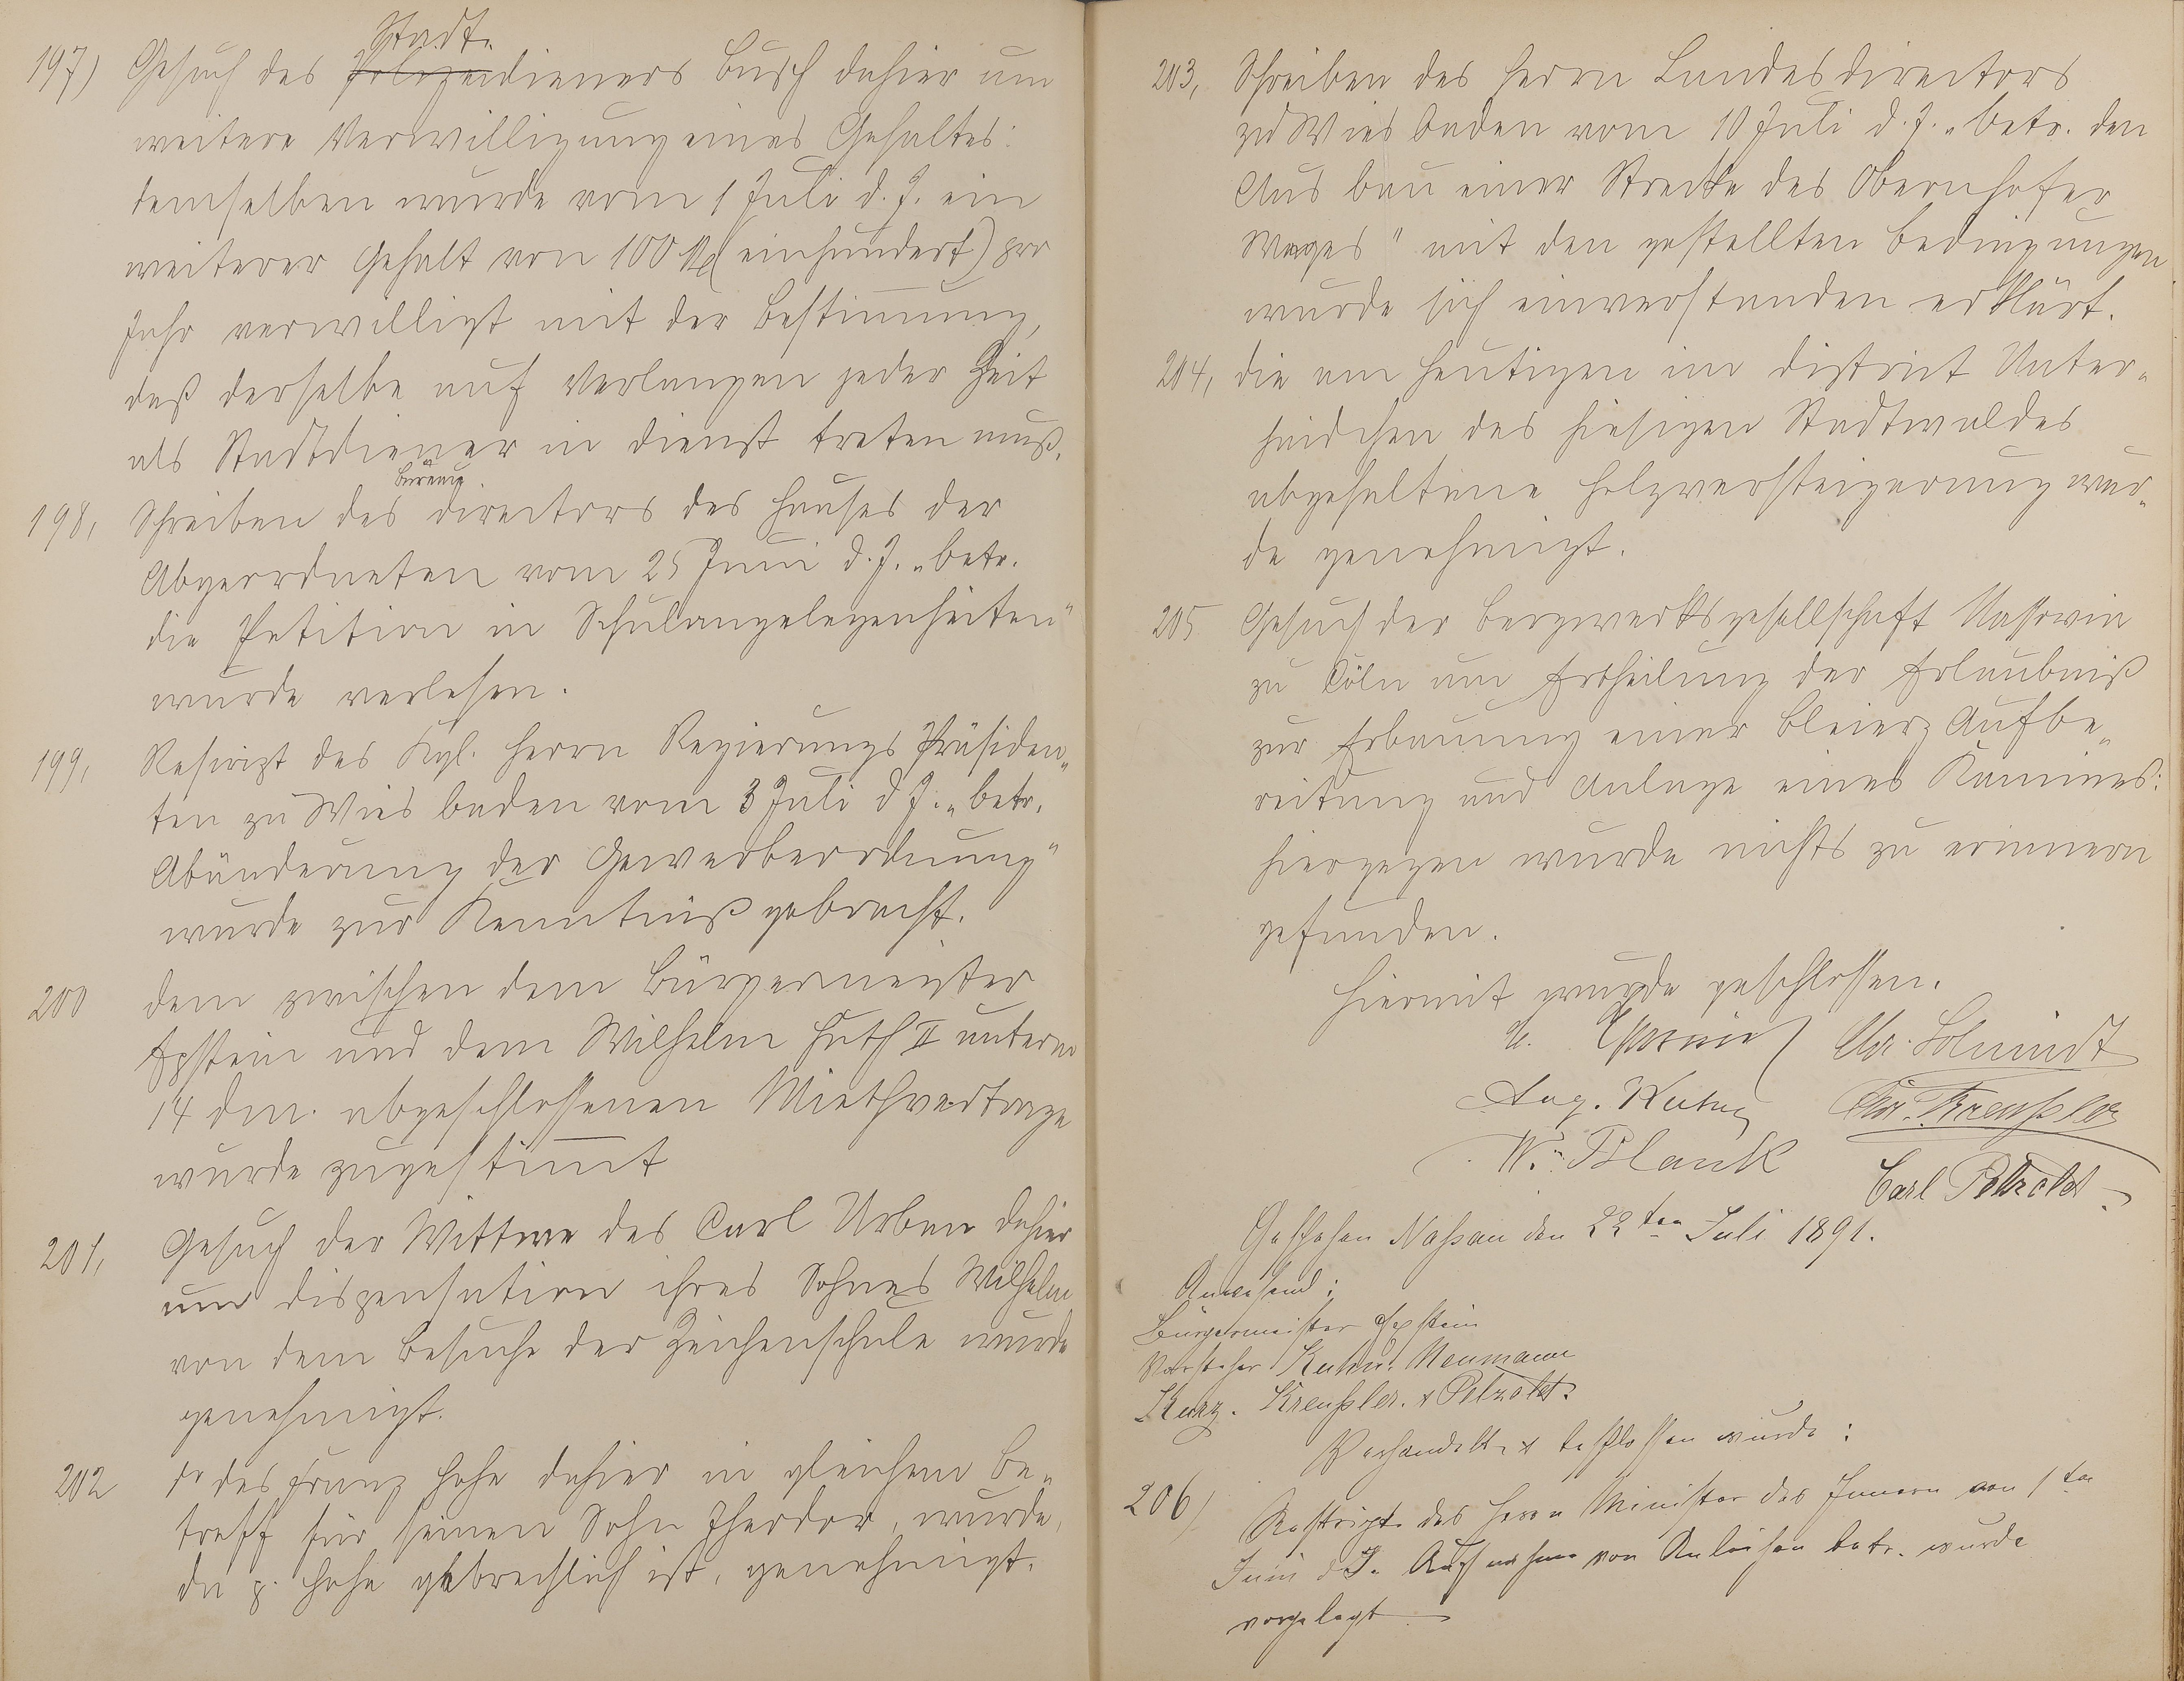 197) Gesuch des Polizeidieners Busch dahier um
Stadt-
weitere Verwilligung eines Gehaltes:
demselben wurde vom 1 Juli d. J. ein
weiterer Gehalt von 100 M (einhundert) pro
Jahr verwilligt mit der Bestim̄ung,
daß derselbe auf Verlangen jeder Zeit
als Stadtdiener in Dienst treten muß.
Büreau
198, Schreiben des Directors des Hauses der
Abgeordneten vom 25 Juni d. J. „betr.
die Petition in Schulangelegenheiten"
wurde verlesen.
199, Rescript des Kgl. Herrn Regierungs Präsiden„
ten zu Wiesbaden vom 3 Juli d J. „betr.
Abänderung der Gewerbeordnung"
wurde zur Kenntniß gebracht.
200 Dem zwischen dem Bürgermeister
Epstein und dem Wilhelm Huth II unterm
14 dm. abgeschlossenen Miethvertrage
wurde zugestim̄t
201, Gesuch der Wittwe des Carl Urban dahier
um Dispensation ihres Sohnes Wilhelm
von dem Besuche der Zeichenschule wurde
genehmigt.
202 do des Franz Hehe dahier in gleichem Be„
treff für seinen Sohn Theodor, wurde,
da p. Hehe gebrechlich ist, genehmigt.
203, Schreiben des Herrn Landesdirectors
zu Wiesbaden vom 10 Juli d. J. „betr. den
Ausbau einer Strecke des Obernhofer
Weges" mit den gestellten Bedingungen
wurde sich einverstanden erklärt.
204, Die am Heutigen im District Unter„
haidchen des hiesigen Stadtwaldes
abgehaltene Holzversteigerung wur„
de genehmigt.
205 Gesuch der Bergwerksgesellschaft Nassovia
zu Cöln um Ertheilung der Erlaubniß
zur Erbauung einer Bleierz Aufbe„
reitung und Anlage eines Kamines:
hiergegen wurde nichts zu erinnern
gefunden.
Hiermit wurde geschlossen.
Chr. Schmidt
Aug. Chr. Kreußler
W. Blank
Carl Petzoldt
Geschehen Naßau den 22ten Juli 1891.
Anwesend:
Bürgermeister Epstein
Vorsteher Kuhn. Neumann
Kurz. Kreußler. & Petzoldt.
Verhandelt & beschlossen wurde:
206) Rescript des Herrn Minister des Innern vom 1ten
Juni d J. Aufnahme von Anleihen betr. wurde
vorgelegt